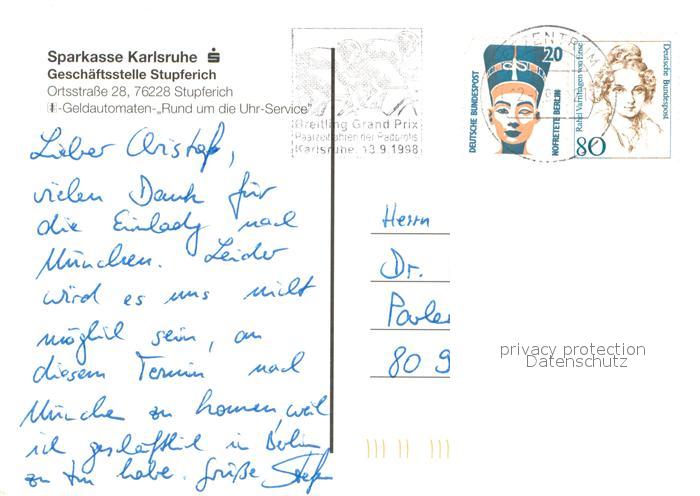 Sparkasse Karlsruhe
Geschäftsstelle Stupferich
Ortsstraße 28, 76228 Stupferich
-Geldautomaten-„Rund um die Uhr-Service"
Lieber Christoph,
vielen Dank für
die Einladg nach
München. Leider
wird es uns nicht
möglich sein, an
diesem Termin nach
München zu kommen, weil
ich geschäftlich in Berlin
zu tun habe. Grüße Stefan
Breitling Grand Prix
Karlsruhe, 13.9.1998
DEUTSCHE BUNDESPOST
20
NOFRETETE BERLIN
Rahel Varnhagen von Ense
80
Deutsche Bundespost
Herrn
Dr.
80 9
privacy protection
Datenschutz